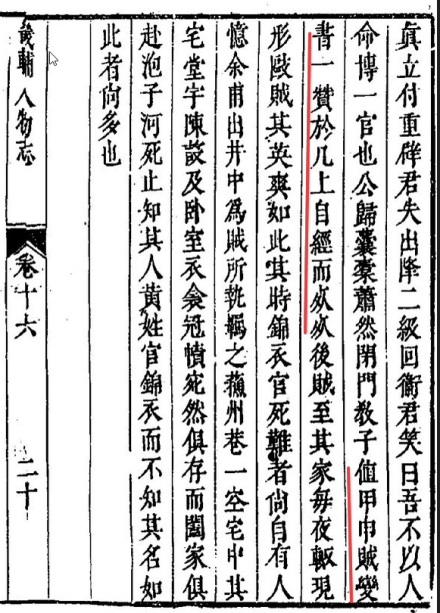 眞立付重辟君失出降二級回衞君笑曰吾不以人
命博一官也公歸囊槖蕭然閉門教子值甲申賊變
書一贊於几上自經而死死後賊至其家每夜輒現
形毆賊其英爽如此其時錦衣官死難者尙自有人
憶余甫出井中爲賊所執羈之蘓州巷一空宅中其
宅堂宇陳設及卧室衣衾冠幘宛然俱存而闔家俱
赴泡子河死止知其人黃姓官錦衣而不知其名如
此者尙多也
畿輔人物志
卷十六
二十